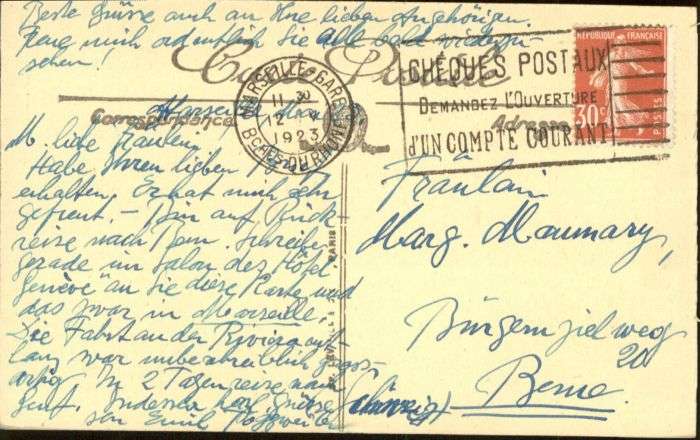 Beste Grüsse auch an Ihre lieben Angehörigen.
Freue mich ordentlich Sie alle bald wiederzu-
sehen!
Carte Postale
Correspondance
Adresse
MARSEILLE-GARE
11 30
12 V
1923
BCHES-DU-RHONE
CHÈQUES POSTAUX
DEMANDEZ L'OUVERTURE
d'UN COMPTE COURANT
RÉPUBLIQUE FRANÇAISE
30c
POSTES
Marseille
M. liebe Fräulein
Habe Ihren lieben
erhalten. Er hat mich sehr
gefreut. – Bin auf Rück-
reise nach Bern. Schreibe
gerade im Salon des Hôtel
Genève an Sie diese Karte und
das zwar in Marseille.
Die Fahrt an der Riviera ent-
lang war unbeschreiblich gross-
artig. In 2 Tagen reise nach
Genf. Indessen herzl. Grüsse
von Emil
PARIS
Fräulein
Marg. Maumary,
Bürgernzielweg
20
Berne
(Schweiz)